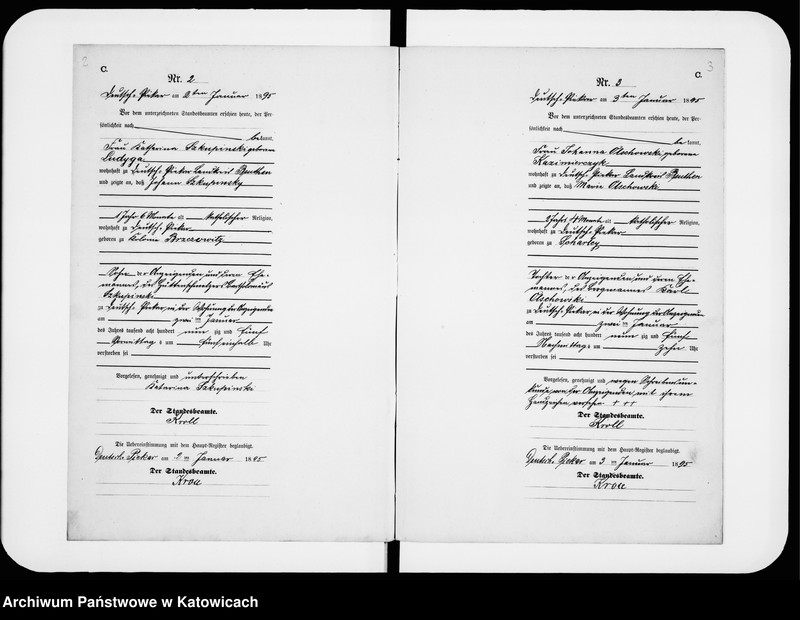 2
C.
Nr. 2
Deutsch-Piekar am 2ten Januar 1895
Vor dem unterzeichneten Standesbeamten erschien heute, der Per-
sönlichkeit nach
be kannt,
Frau Katharina Szkupinski geborene
Ludyga
wohnhaft zu Deutsch-Piekar Landkreis Beuthen
und zeigte an, daß Johann Szkupinsky
1 Jahr 6 Monate alt katholischer Religion,
wohnhaft zu Deutsch-Piekar
geboren zu Kolonie Brzezowitz
Sohn der Anzeigenden und deren Ehe-
mannes, des
Szkupinski
zu Deutsch-Piekar, in der Wohnung der Anzeigenden
am zwei ten Januar
des Jahres tausend acht hundert neun zig und fünf
Vormittag s um fünf einhalb Uhr
verstorben sei
Vorgelesen, genehmigt und unterschrieben
Katarina Szkupinski
Der Standesbeamte.
Kroll
Die Uebereinstimmung mit dem Haupt-Register beglaubigt.
Deutsch-Piekar am 2 ten Januar 1895
Der Standesbeamte.
Kroll
3
C.
Nr. 3
Deutsch-Piekar am 3ten Januar 1895
Vor dem unterzeichneten Standesbeamten erschien heute, der Per-
sönlichkeit nach
be kannt,
Frau Johanna Olschowski geborene
Kazimierczyk
wohnhaft zu Deutsch-Piekar Landkreis Beuthen
und zeigte an, daß Marie Olschowski
2 Jahre Monate alt katholischer Religion,
wohnhaft zu Deutsch-Piekar
geboren zu Scharley
Tochter der Anzeigenden und deren Ehe-
mannes, des Bergmannes Karl
Olschowski
zu Deutsch-Piekar, in der Wohnung der Anzeigenden
am zwei ten Januar
des Jahres tausend acht hundert neun zig und fünf
Nachmittag s um zehn Uhr
verstorben sei
Vorgelesen, genehmigt und wegen Schreibensun-
kunde von der Anzeigenden mit ihrem
Handzeichen versehen + + +
Der Standesbeamte.
Kroll
Die Uebereinstimmung mit dem Haupt-Register beglaubigt.
Deutsch-Piekar am 3 ten Januar 1895
Der Standesbeamte.
Kroll
Archiwum Państwowe w Katowicach